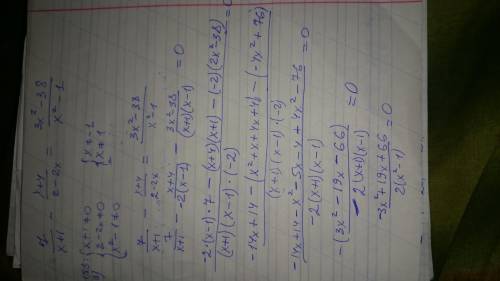 7/(x+1) - (x+4)/(2-2x) = (3x²-38)/(x²-1)
ОДЗ: { x+1≠0 { x≠-1
2-2x≠0 x≠1
x²-1≠0
7/(x+1) - (x+4)/(2-2x) = (3x²-38)/(x²-1)
7/(x+1) - (x+4)/(-2(x-1)) - (3x²-38)/((x+1)(x-1)) = 0
(-2·(x-1)·7-(x+4)(x+1)-(-2)(2x²-38))/((x+1)(x-1)·(-2)) = 0
(-14x+14-(x²+x+4x+4)-(-4x²+76))/((x+1)(x-1)·(-2))
(-14x+14-x²-5x-4+4x²-76)/(-2(x+1)(x-1)) = 0
-(3x²-19x-66)/(-2(x+1)(x-1)) = 0
(-3x²+19x+66)/(2(x²-1)) = 0